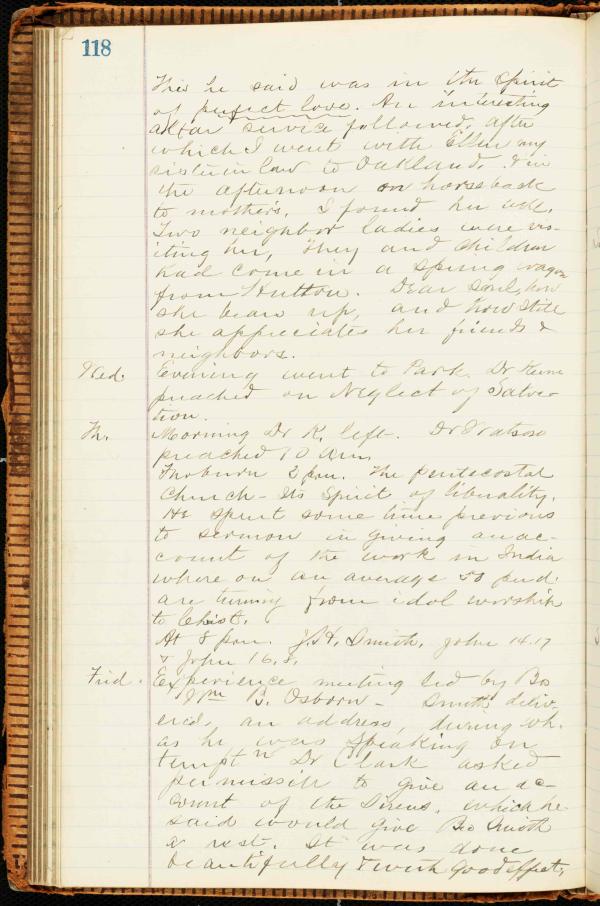 118
This he said was in the Spirit
of perfect love. An interesting
altar service followed, after
which I went with Ellen my
sister in law to Oakland, & in
the afternoon on horseback
to mothers. I found her well.
Two neighbor ladies were vis-
iting her, They and children
had come in a spring wagon
from Hutton. Dear soul, how
she bears up, and how still
she appreciates her friends &
neighbors.
Wed. Evening went to Park. Dr Keene
preached on Neglect of Salva-
tion.
Th. Morning Dr K. left. Dr Watson
preached 10 a.m.
Thoburn 2 p.m. The pentecostal
Church - Its Spirit of liberality.
He spent some time previous
to sermon in giving an ac-
count of the work in India
where on an average 50 pr d.
are turning from idol worship
to Christ.
At 8 p.m. Smith, John 14.17
& John 16.8.
Frid. Experience meeting led by Bro
Wm B. Osborn - Smith deliv-
ered an address, during wh.
as he was speaking on
temptn Dr Clark asked
permission to give an ac-
count of the Sirens, which he
said would give Bro Smith
a rest. It was done
beautifully & with good effect,